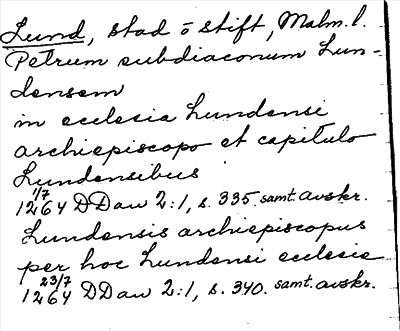 Lund, stad o stift, Malm. l.
Petrum subdiaconum Lun-
densem
in ecclesia Lundensi
archiepiscopo et capitulo
Lundensibus
1/7
1264 DD aw 2:1, s. 335. samt. avskr.
Lundensis archiepiscopus
per hoc Lundensi ecclesie
23/7
1264 DD aw 2:1, s. 340. samt. avskr.